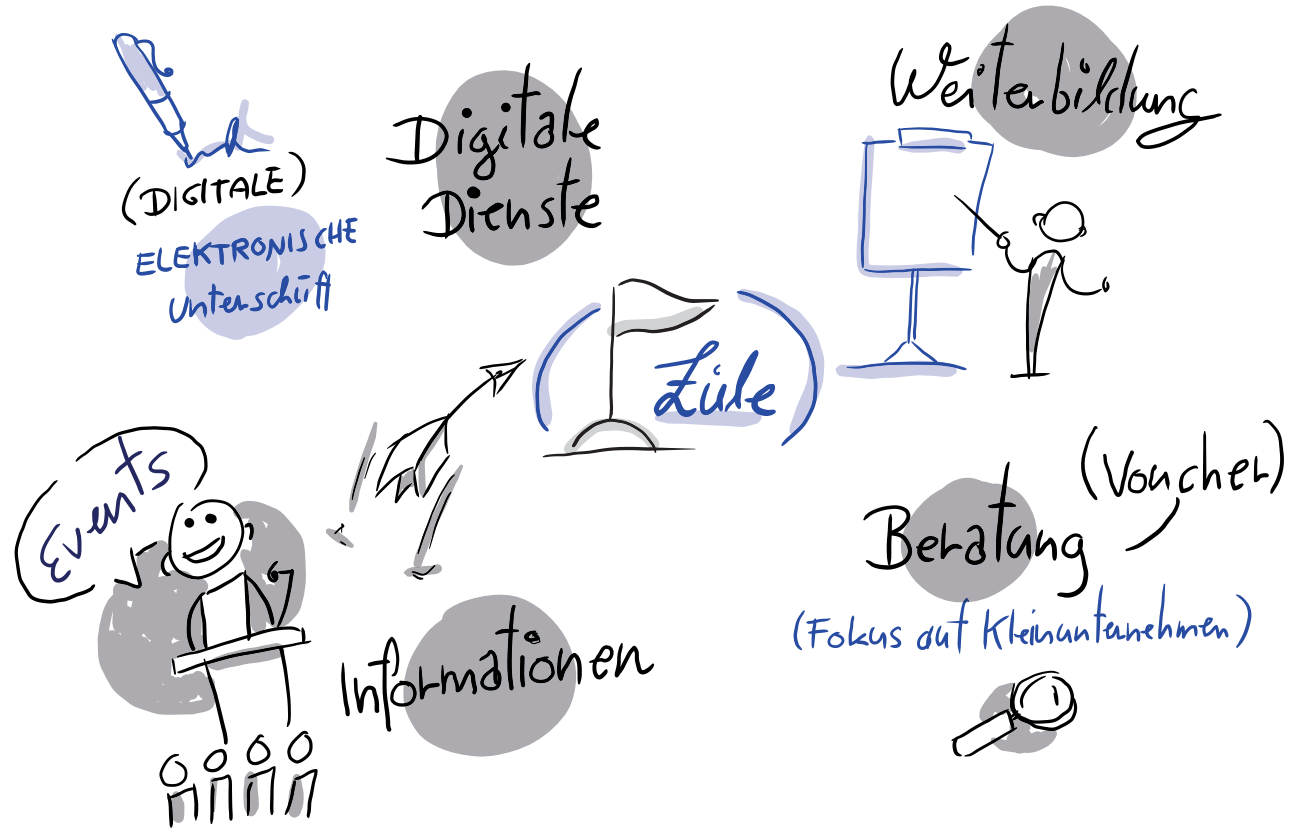 (DIGITALE)
ELEKTRONISCHE
Unterschrift
Digitale
Dienste
Weiterbildung
Ziele
Events
Informationen
Beratung
(Voucher)
(Fokus auf Kleinunternehmen)